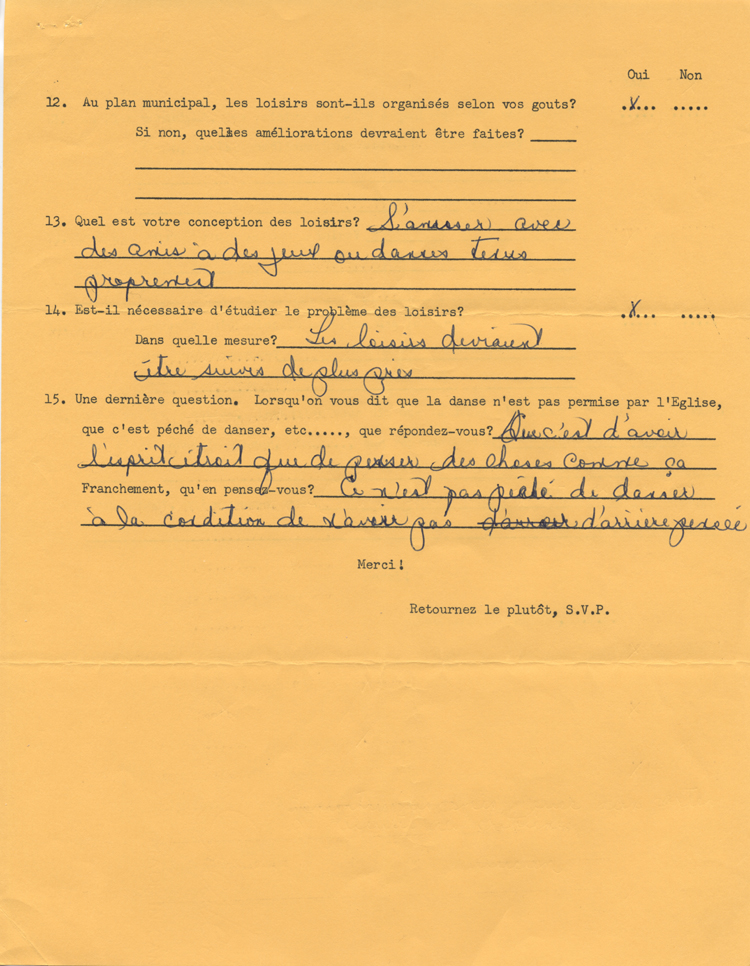 Oui Non
12. Au plan municipal, les loisirs sont-ils organisés selon vos gouts? .X... .....
Si non, quelles améliorations devraient être faites? _____
13. Quel est votre conception des loisirs? S'amuser avec
des amis à des jeux ou danses tenus
proprement
14. Est-il nécessaire d'étudier le problème des loisirs? .X... .....
Dans quelle mesure? Les loisirs devraient
être suivis de plus près
15. Une dernière question. Lorsqu'on vous dit que la danse n'est pas permise par l'Eglise,
que c'est péché de danser, etc....., que répondez-vous? Que c'est d'avoir
l'esprit étroit que de penser des choses comme ça
Franchement, qu'en pensez-vous? Ce n'est pas péché de danser
à la condition de n'avoir pas d'arrière pensée
Merci!
Retournez le plutôt, S.V.P.